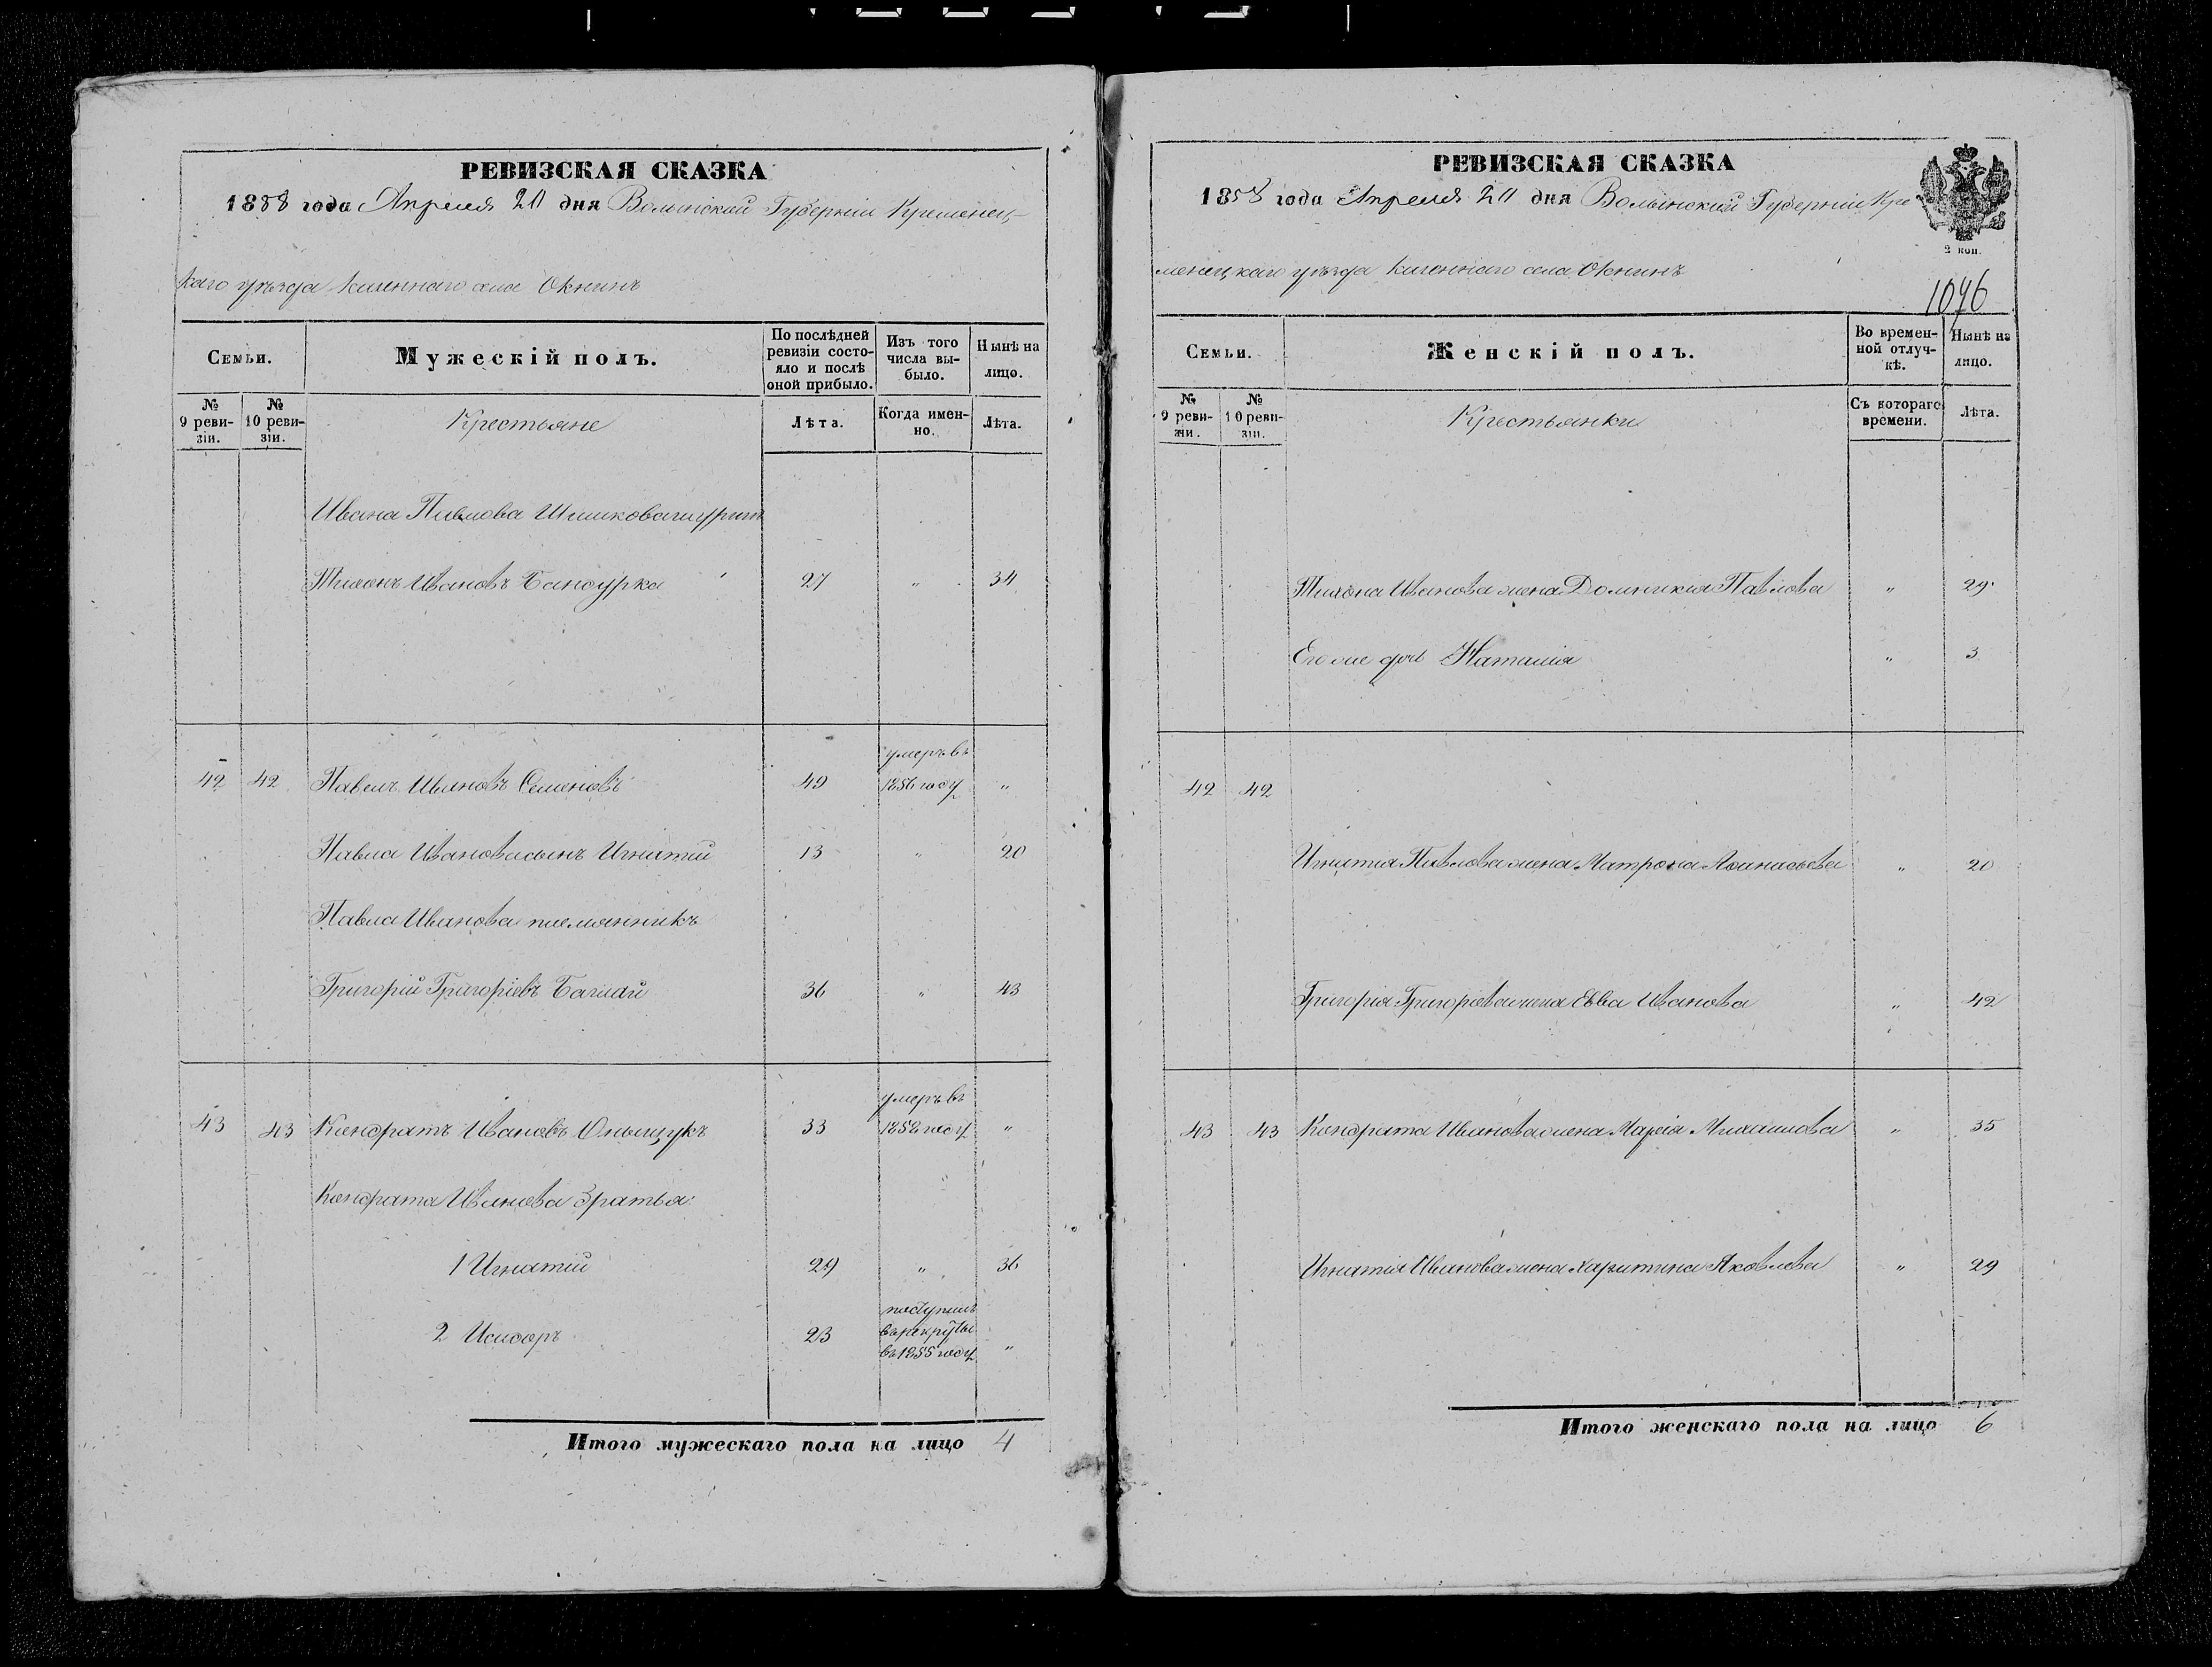 РЕВИЗСКАЯ СКАЗКА
1858 года Апреля 20 дня Волынской Губерніи Кременец-
каго уѣзда казеннаго села Окнинъ
Семьи.
Мужескій полъ.
По послѣдней ревизіи состояло и послѣ оной прибыло.
Изъ того числа выбыло.
Нынѣ на лицо.
№ 9 ревизіи.
№ 10 ревизіи.
Крестьяне
Лѣта.
Когда именно.
Лѣта.
Ивана Павлова
Тихонъ Ивановъ Бандурка 27 " 34
умеръ въ
42 42 Павелъ Ивановъ Семеновъ 49 1856 году "
Павла Иванова сынъ Игнатій 13 " 20
Павла Иванова племянникъ
Григорій Григорьевъ 36 " 43
умеръ въ
43 43 Кондратъ Ивановъ Оныщукъ 33 1858 году "
Кондрата Иванова братья:
1 Игнатій 29 " 36
поступилъ
въ рекруты
2 Исидоръ 23 въ 1855 году "
Итого мужескаго пола на лицо 4
РЕВИЗСКАЯ СКАЗКА
1858 года Апреля 20 дня Волынской Губерніи Кре
2 коп.
менецкаго уѣзда казеннаго села Окнинъ
1076
Семьи.
Женскій полъ.
Во временной отлучкѣ.
Нынѣ на лицо.
№ 9 ревизіи.
№ 10 ревизіи.
Крестьянки
Съ котораго времени.
Лѣта.
Тихона Иванова жена Домникія Павлова " 29
Его же дочь Наталія " 3
42 42
Игнатія Павлова жена Матрона Афанасьева " 20
Григорія Григорьева жена Евва Иванова " 42
43 43 Кондрата Иванова жена Марія Михайлова " 35
Игнатія Иванова жена Харитина Яковлева " 29
Итого женскаго пола на лицо 6